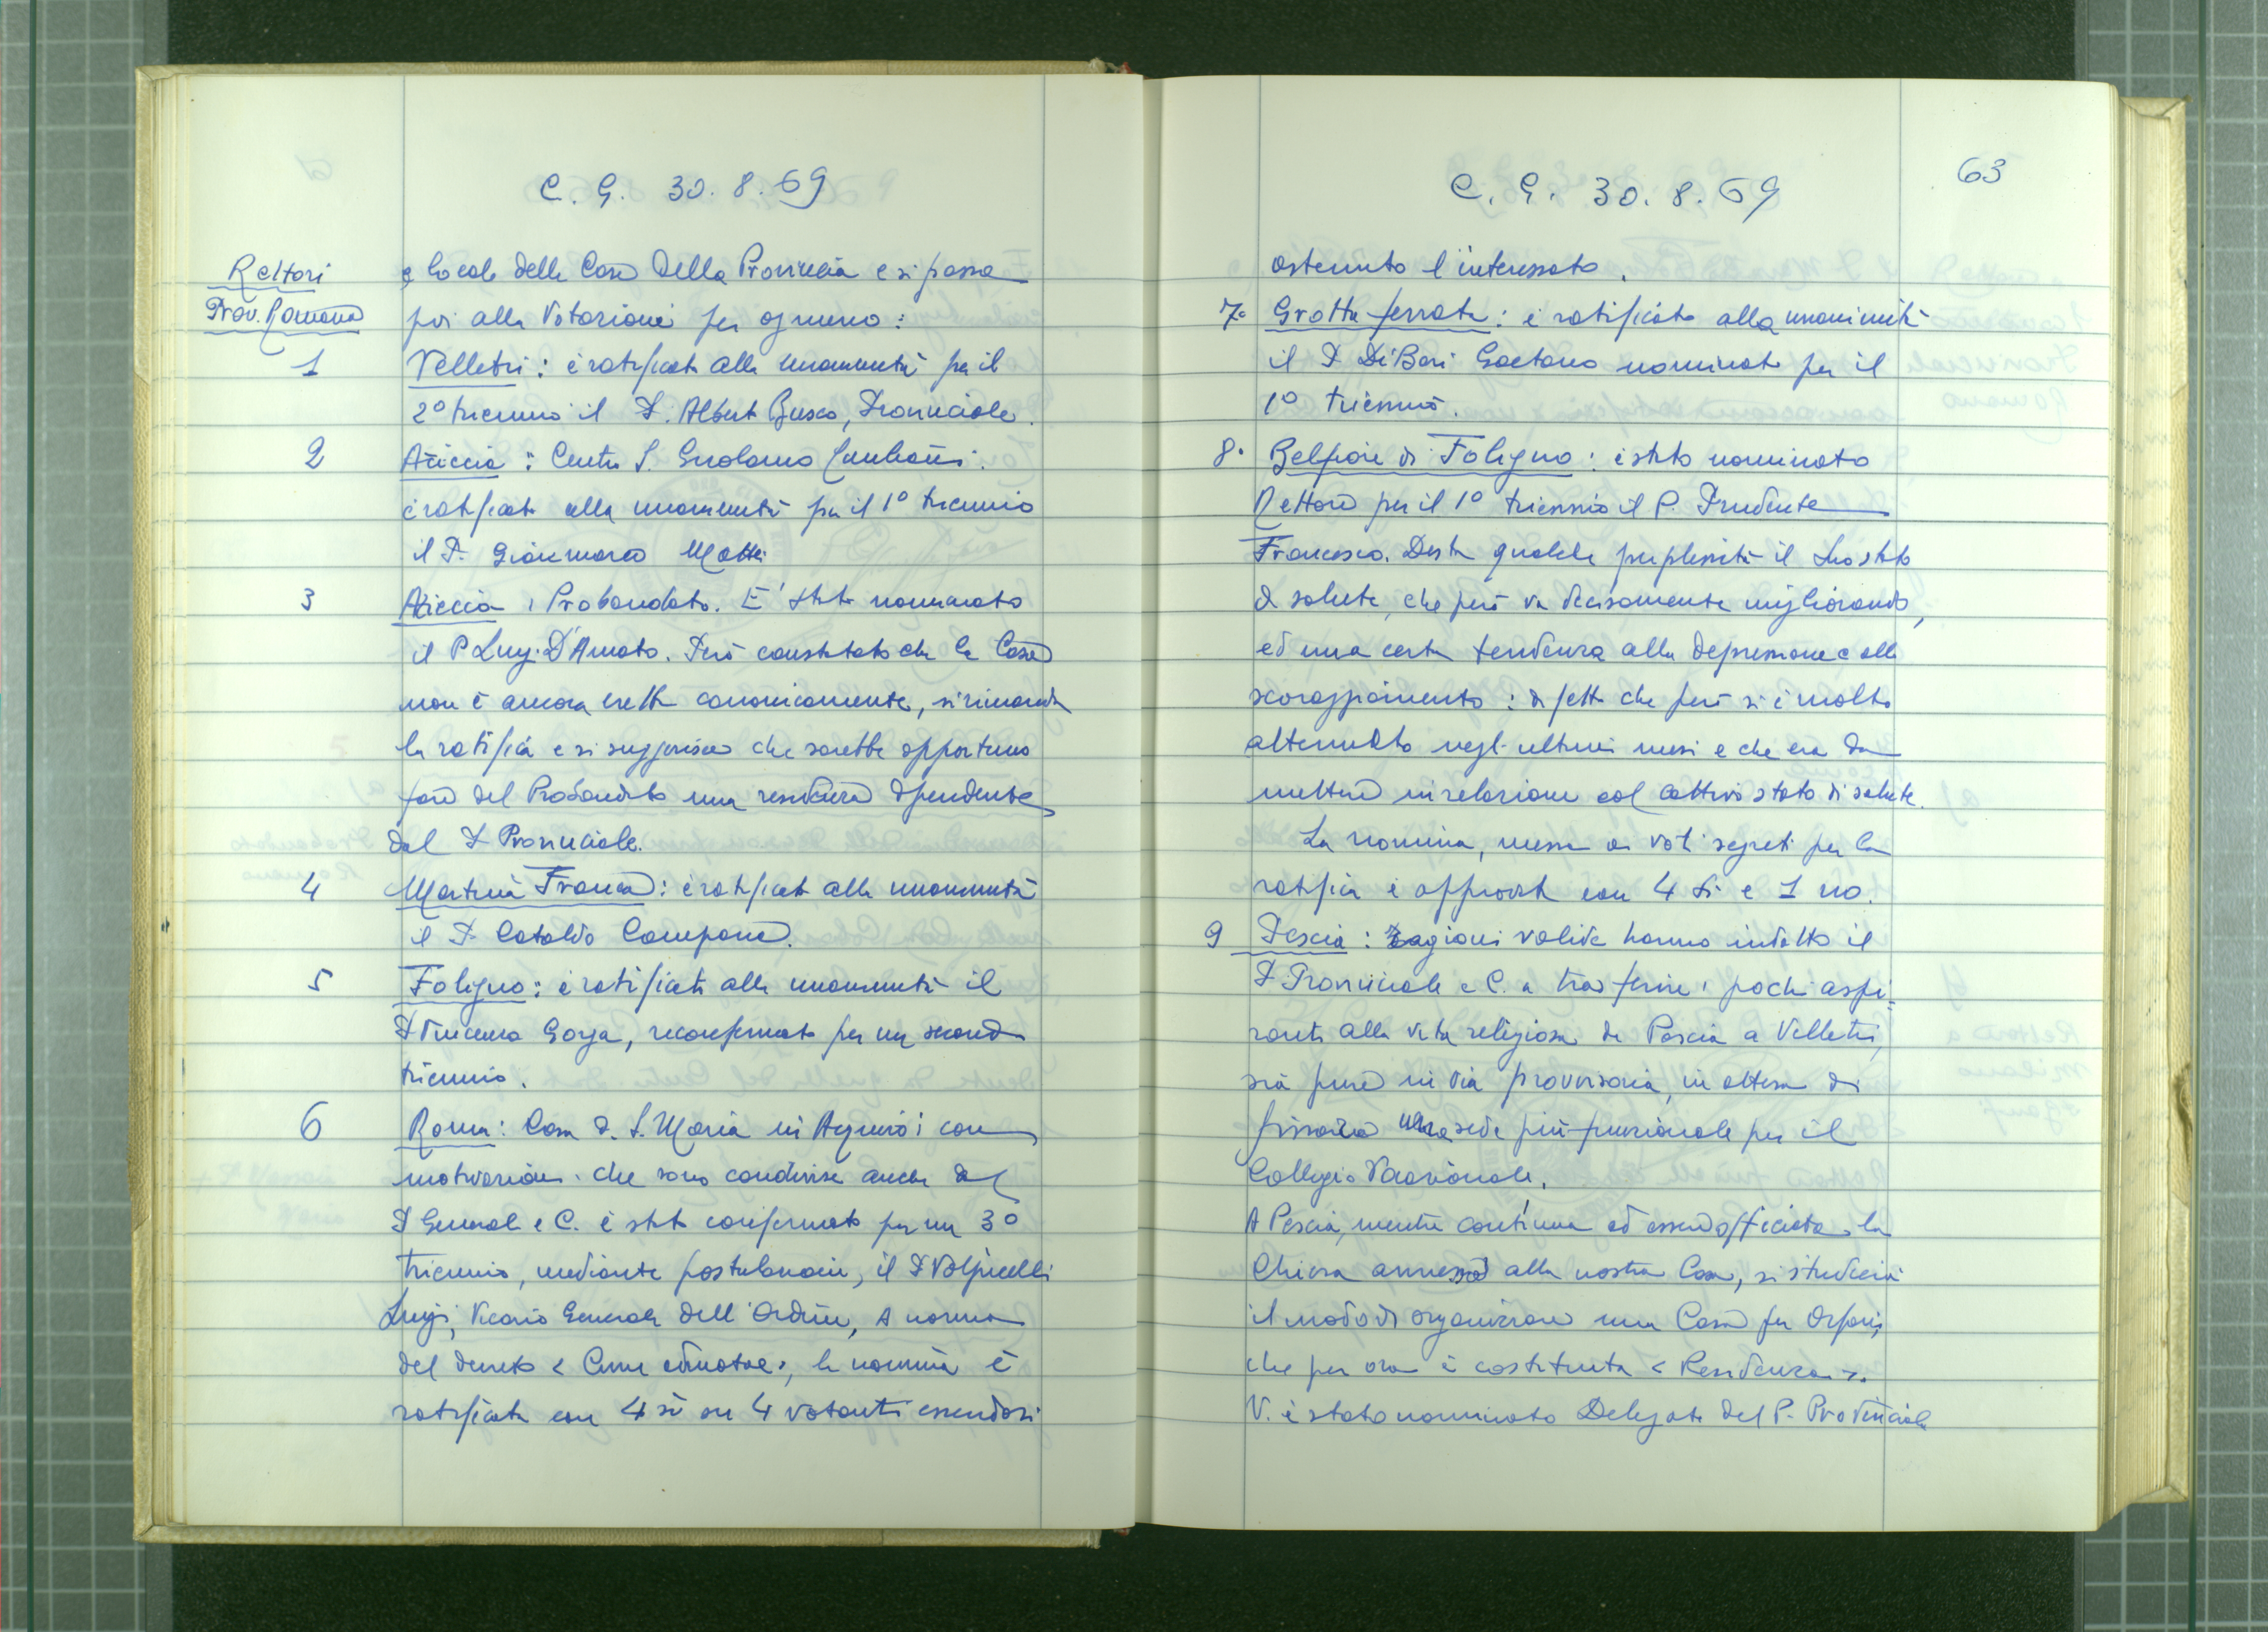 C. G. 30.8.69
Rettori
Prov. Romana
e locale delle Case della Provincia e si passa
poi alla votazione per ognuno:
1 Velletri: è ratificata alla unanimità per il
2º triennio il P. Albert Busco, Provinciale.
2 Ariccia: Centro S. Girolamo
è ratificata alla unanimità per il 1º triennio
il P. Gianmarco Mattei
3 Ariccia, Probandato. E' stato nominato
il P Luigi D'Amato. Però constatato che la Casa
non è ancora eretta canonicamente, si rimanda
la ratifica e si suggerisce che sarebbe opportuno
fare del Probandato una residenza dipendente
dal P Provinciale.
4 Martina Franca: è ratificata alla unanimità
il P. Cataldo Campana.
5 Foligno: è ratificata alla unanimità il
P Vincenzo Gorga, riconfermato per un secondo
triennio.
6 Roma: Casa d. S. Maria in Aquiro: con
motivazioni che sono condivise anche dal
P Generale e C. è stato confermato per un 3º
triennio, mediante postulazione, il P Volpicelli
Luigi, Vicario Generale dell'Ordine, A norma
del decreto < Cum admotae>, la nomina è
ratificata con 4 sì su 4 votanti essendosi
C. G. 30.8.69
63
astenuto l'interessato.
7. Grottaferrata: è ratificata alla unanimità
il P Di Bari Gaetano nominato per il
1º triennio.
8. Belfiore di Foligno: è stato nominato
Rettore per il 1º triennio il P. Prudente
Francesco. Desta qualche perplessità il suo stato
di salute, che però va decisamente migliorando,
ed una certa tendenza alla depressione e allo
scoraggiamento: difetto che però si è molto
attenuato negli ultimi mesi e che era da
mettere in relazione col cattivo stato di salute.
La nomina, messa ai voti segreti per la
ratifica è approvata con 4 sì e 1 no.
9 Pescia: ragioni valide hanno indotto il
P Provinciale e C. a trasferire i pochi aspi-
ranti alla vita religiosa da Pescia a Velletri,
sia pure in via provvisoria, in attesa di
fissare una sede più funzionale per il
Collegio Vocazionale.
A Pescia, mentre continua ad essere officiata la
Chiesa annessa alla nostra Casa, si studierà
il modo di organizzare una Casa per Orfani,
che per ora è costituita < Residenza >.
V. è stato nominato Delegato del P. Provinciale